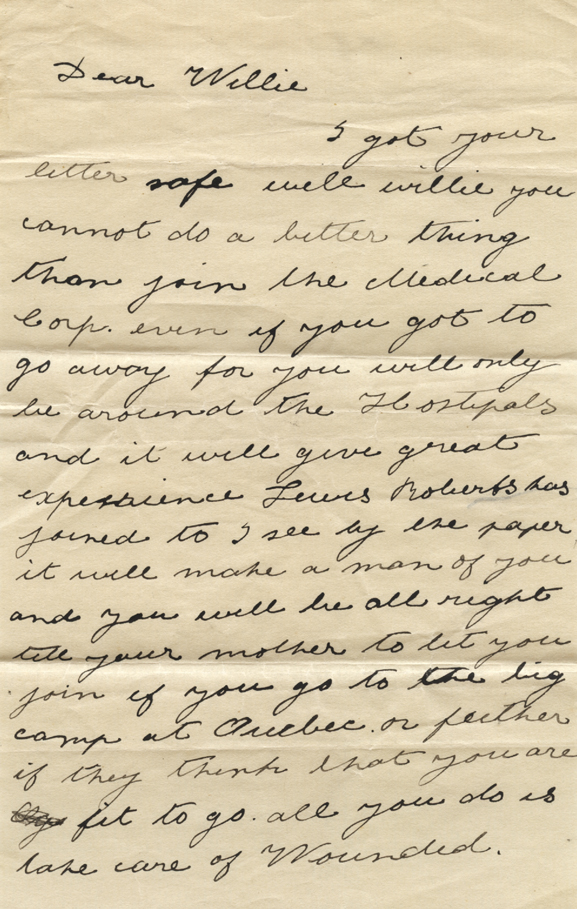 Dear Willie
I got your
letter safe well willie you
cannot do a better thing
than join the Medical
Corp. even if you got to
go away for you will only
be around the Hostipals
and it will give great
experience Lewis Roberts has
joined to I see by the paper
it will make a man of you
and you will be all right
till your mother to let you
join if you go to the big
camp at Quebec. or further
if they think that you are
fit to go. all you do is
take care of Wounded.